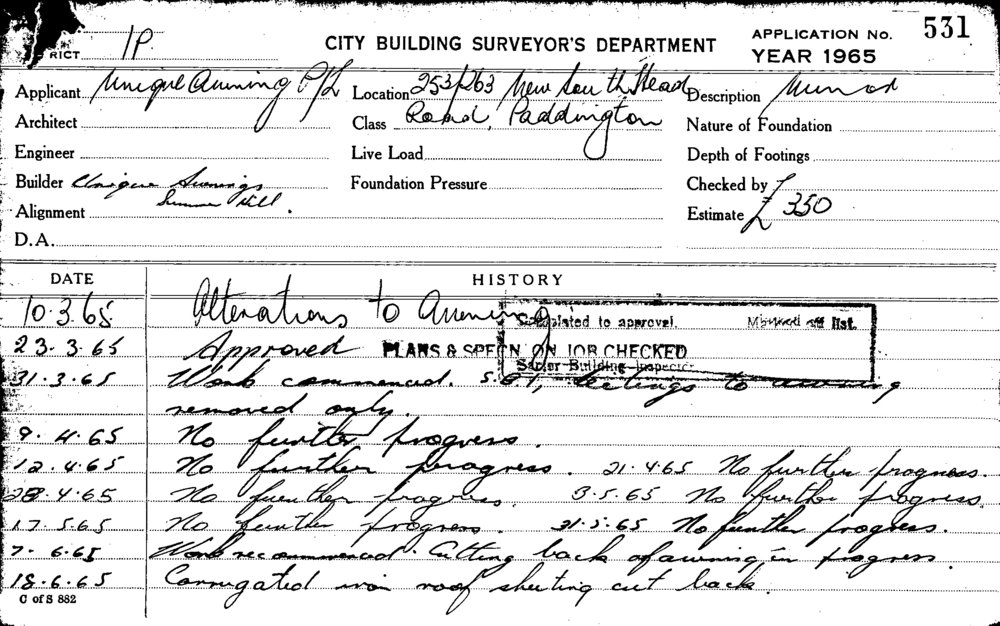 RICT IP CITY BUILDING SURVEYOR'S DEPARTMENT APPLICATION No. 531
YEAR 1965
Applicant Unique Awning P/L Location 253/263 New South Head Description Minor
Architect Class Road, Paddington Nature of Foundation
Engineer Live Load Depth of Footings
Builder Unique Awnings Foundation Pressure Checked by
Summer Hill.
Alignment Estimate £ 350
D.A.
DATE HISTORY
10.3.65 Alterations to Awning
Completed to approval. Marked off list.
23.3.65 Approved PLANS & SPECN ON JOB CHECKED
Senior Building Inspector
31.3.65 Work commenced. to awning
removed only.
9.4.65 No further progress.
12.4.65 No further progress. 21.4.65 No further progress.
28.4.65 No further progress. 3.5.65 No further progress.
17.5.65 No further progress. 31.5.65 No further progress.
7.6.65 Work recommenced. Cutting back of awning in progress
18.6.65 Corrugated iron roof sheeting cut back.
C of S 882